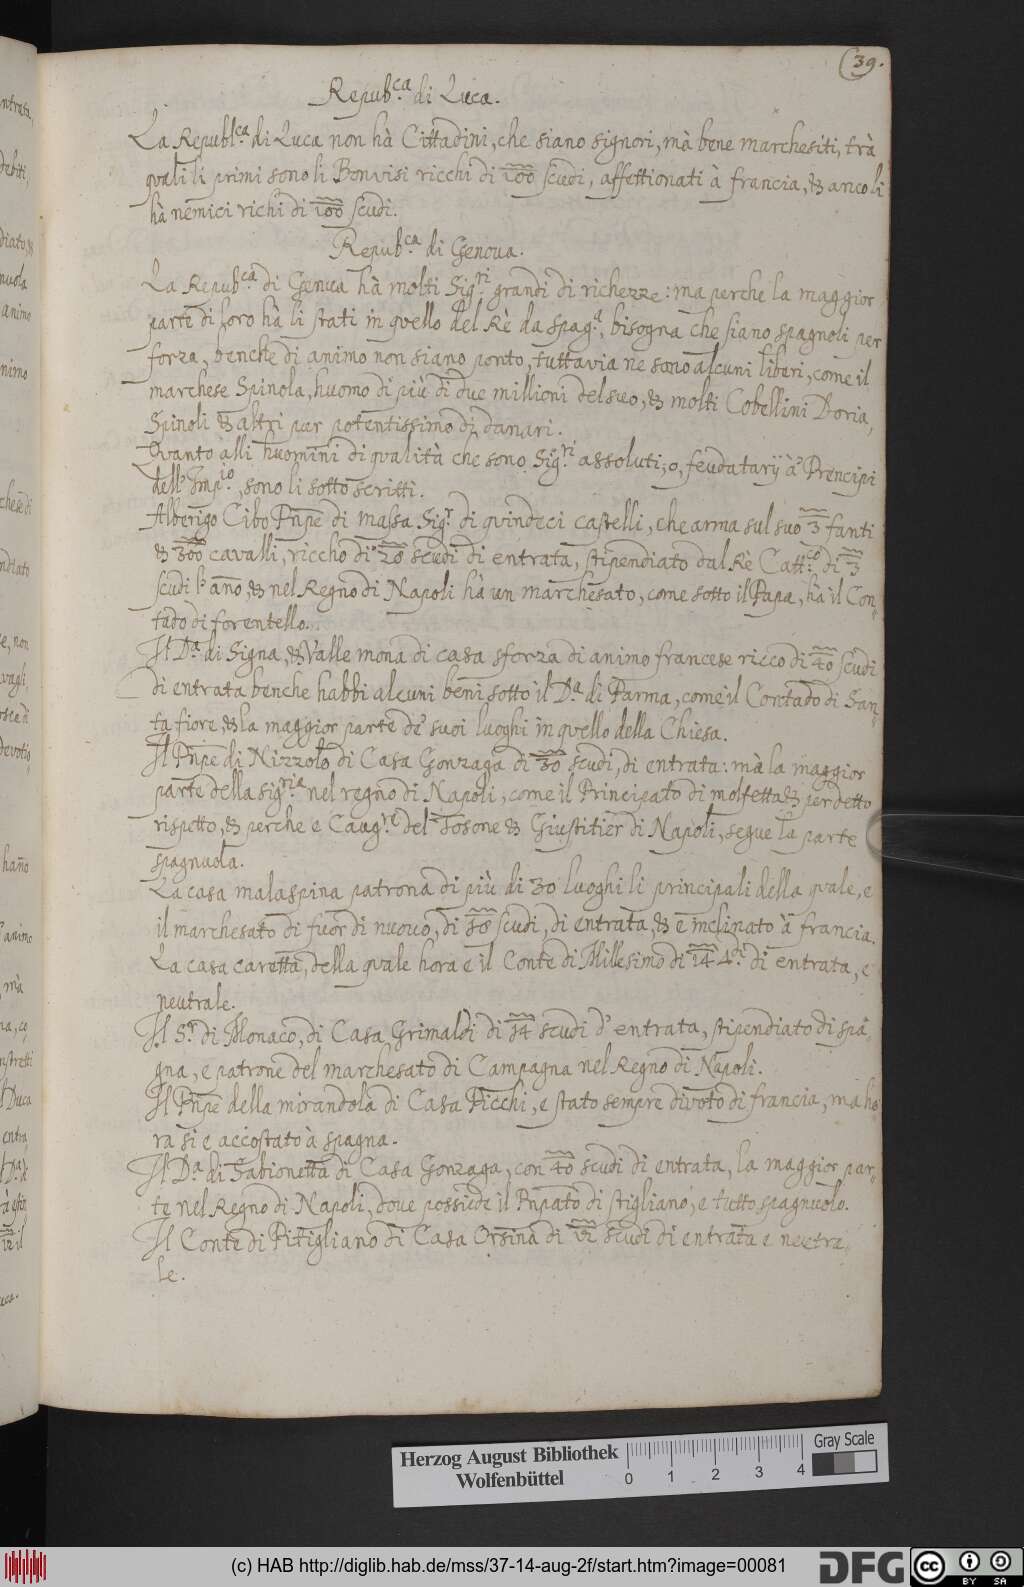 39.
Repub.ca di Luca.
La Republ.ca di Luca non hà Cittadini, che siano signori, mà bene marchesiti, trà
quali li primi sono li Bonvisi ricchi di 100 scudi, affettionati à francia, & anco li
hà nemici richi di 100 scudi.
Repub.ca di Genoua.
La Repub.ca di Genua hà molti Sig.ri grandi di richezze: ma perche la maggior
parte di loro hà li stati in quello del Rè da spag.a, bisogna che siano spagnoli per
forza, benche di animo non siano ponto, tuttavia ne sono alcuni liberi, come il
marchese Spinola, huomo di più di due millioni del suo, & molti Cobellini Doria,
Spinoli & altri pur potentissimo di danari.
Quanto alli huomini di qualità che sono Sig.ri assoluti, o, feudatarÿ à Prencipi
dell' Imp.io, sono li sotto scritti.
Alberigo Cibo Pñpe di massa Sig.r di quindeci castelli, che arma sul suo 3 fanti
& 300 cavalli, riccho di 20 scudi di entrata, stipendiato dal Rè Catt.co di 3
scudi l' año, & nel Regno di Napoli hà un marchesato, come sotto il Papa, hà il Con=
tado di forentello.
Il D.a di Signa, & Valle mona di casa sforza di animo francese ricco di 40 scudi
di entrata benche habbi alcuni beni sotto il D.a di Parma, come il Contado di San=
ta fiore, & la maggior parte de' suoi luoghi in quello della Chiesa.
Il Pñpe di Nizzolo di Casa Gonzaga di 30 scudi, di entrata: mà la maggior
parte della sig.ria nel regno di Napoli, come il Principato di molfetta & per detto
rispetto, & perche e Caug.re del Tosone & Giustitier di Napoli, segue la parte
spagnuola.
La casa malaspina patrona di più di 30 luoghi li principali della quale, e
il marchesato di fuor di nuouo, di 18 scudi, di entrata, & e inclinato à francia.
La casa caretta, della quale hora e il Conte di Millesimo di 14 di entrata, e
neutrale.
Il S.r di Monaco, di Casa Grimaldi di 14 scudi d' entrata, stipendiato di spa=
gna, e patrone del marchesato di Campagna nel Regno di Napoli.
Il Pñpe della mirandola di Casa Picchi, e stato sempre divoto di francia, ma ho
ra si e accostato à spagna.
Il D.a di Sabionetta di Casa Gonzaga, con 40 scudi di entrata, la maggior par=
te nel Regno di Napoli, doue possiede il Pñpato di stigliano, e tutto spagnuolo.
Il Conte di Pitigliano di Casa Orsina di scudi di entrata e neutra=
le.
Herzog August Bibliothek
Wolfenbüttel
0 1 2 3 4
Gray Scale
(c) HAB http://diglib.hab.de/mss/37-14-aug-2f/start.htm?image=00081
DFG
cc BY SA